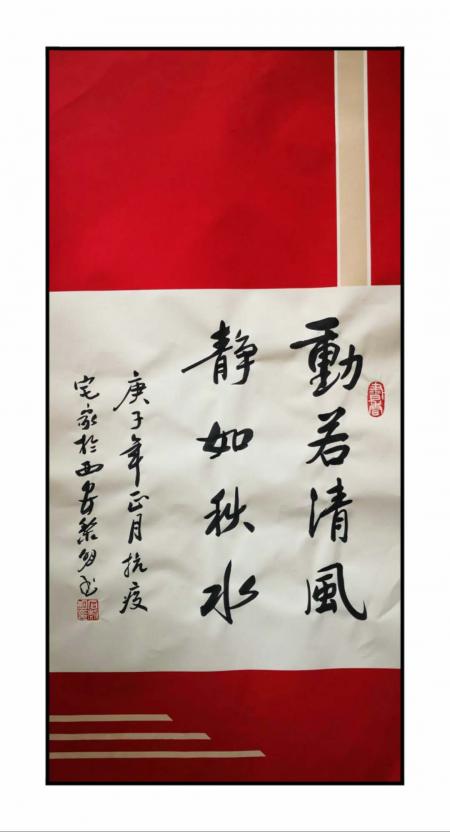 動若清風
靜如秋水
庚子年正月抗疫
宅家於西安
書